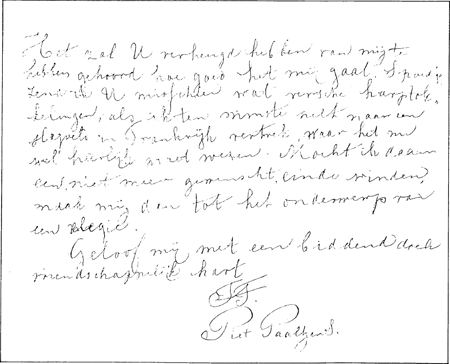 Het zal U verheugd hebben van mij te
hebben gehoord hoe goed het mij gaat. Spoedig
zend ik U misschien wat versche harptok-
kelingen, als ik ten minste niet naar een
in Frankrijk vertrek, waar het nu
wel heerlijk moet wezen. Mocht ik daar
een, niet meer gewenscht, einde vinden,
maak mij dan tot het onderwerp van
een elegie.
Geloof mij met een biddend doch
vriendschappelijk hart
Piet Paaltjens.